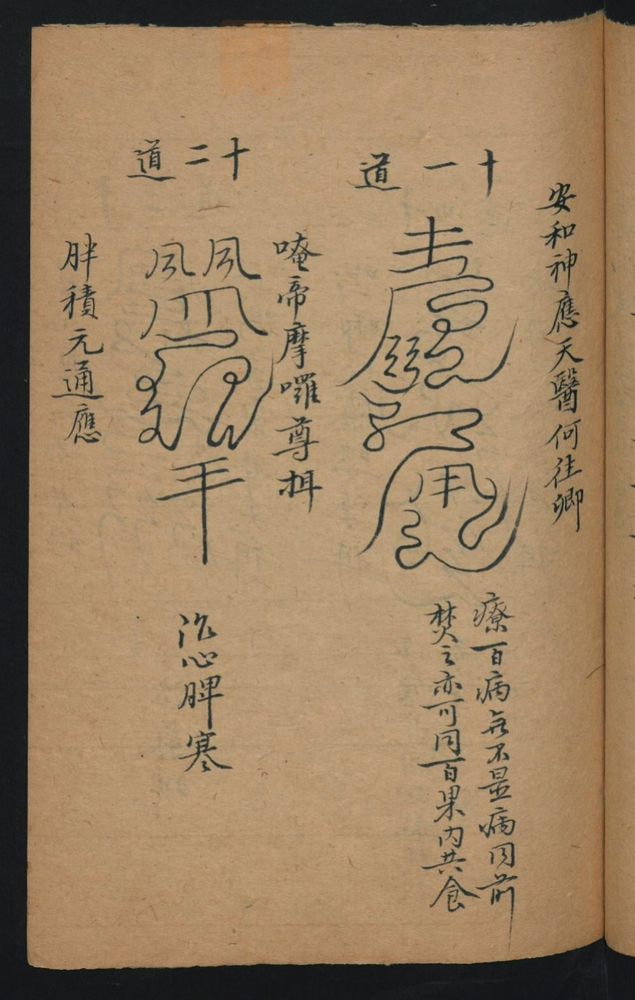 安和神應天醫何往卿
十一道
療百病無不显病同前
焚之亦可同百果内共食
唵帝摩囉尊揖
十二道
治心脾寒
胖積元通應